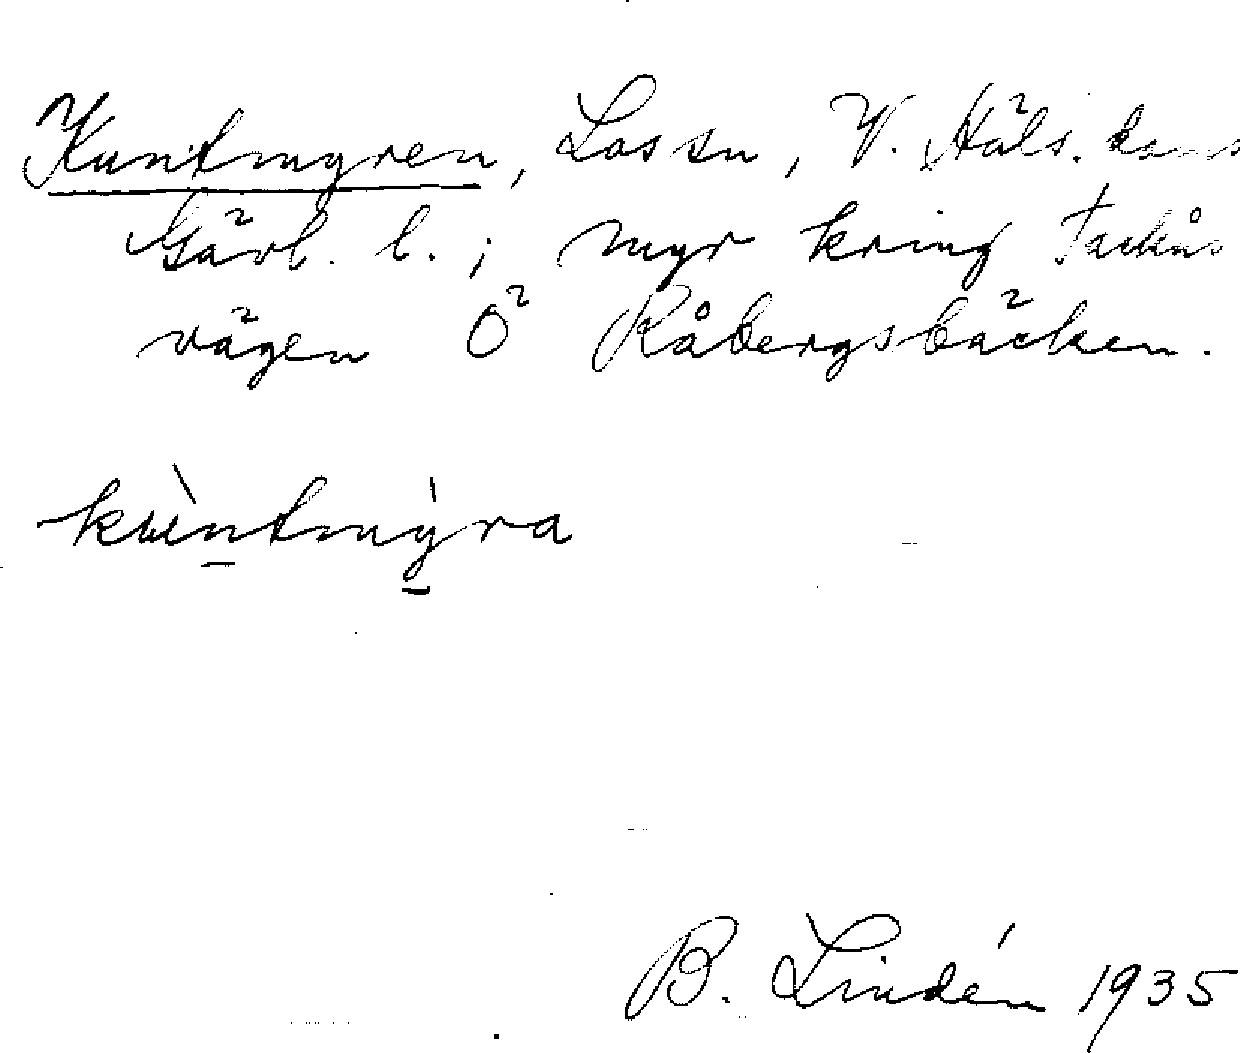 Kuntmyren, Los sn, V. Häls. doms
Gävl. l.; myr kring Tackås
vägen Ö Råbergsbäcken.
kùntmy̍ra
B. Lindén 1935